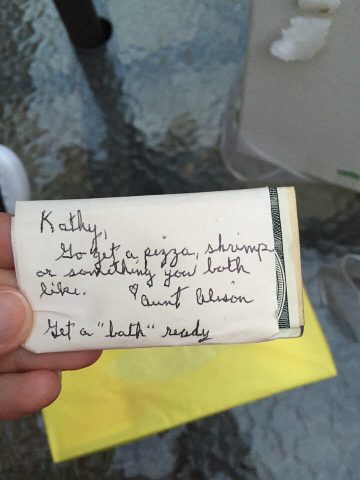 Kathy,
Go get a pizza, shrimp
or something you both
like.
♥ Aunt Alison
Get a "bath" ready